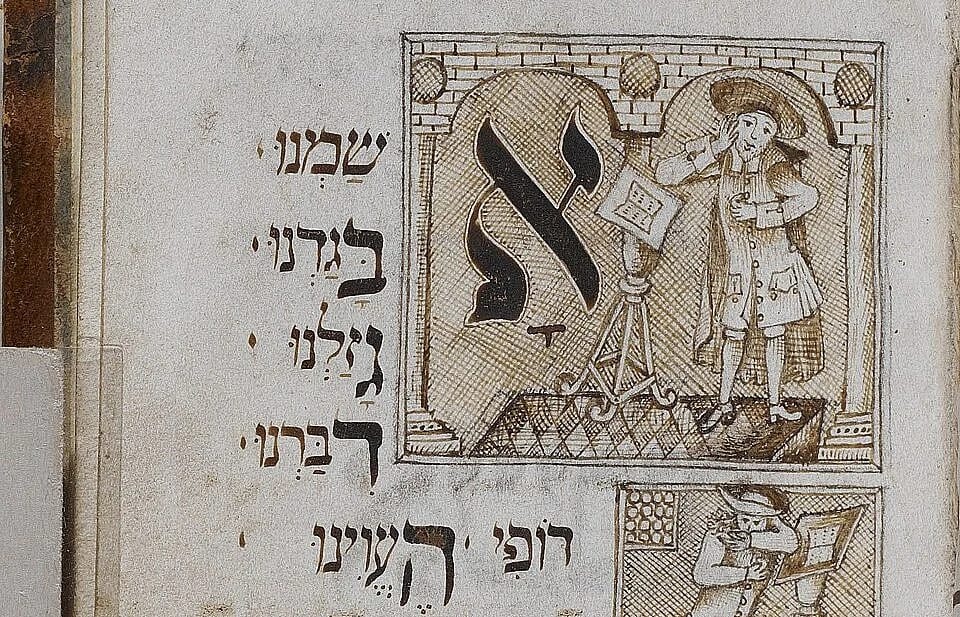 אָשַׁמְנוּ ·
בָּגַדְנוּ ·
גָּזַלְנוּ ·
דִּבַּרְנוּ ·
דוֹפִי · הֶעֱוִינוּ ·